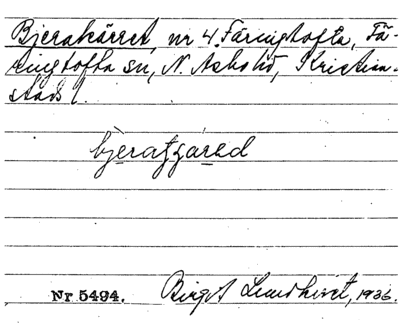 Bjerakärret, nr 4 Färingtofta, Fä-
ringtofta sn, N. Åsbo hd, Kristian-
stads l.
bjeratjäred
Nr 5494. Birgit Lundkvist, 1936.